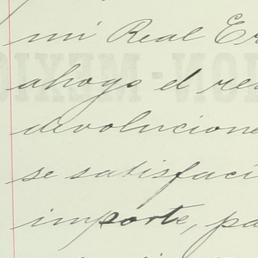 mi Real Er
ahogo el re
devolucione
se satisfaci
importe, pa